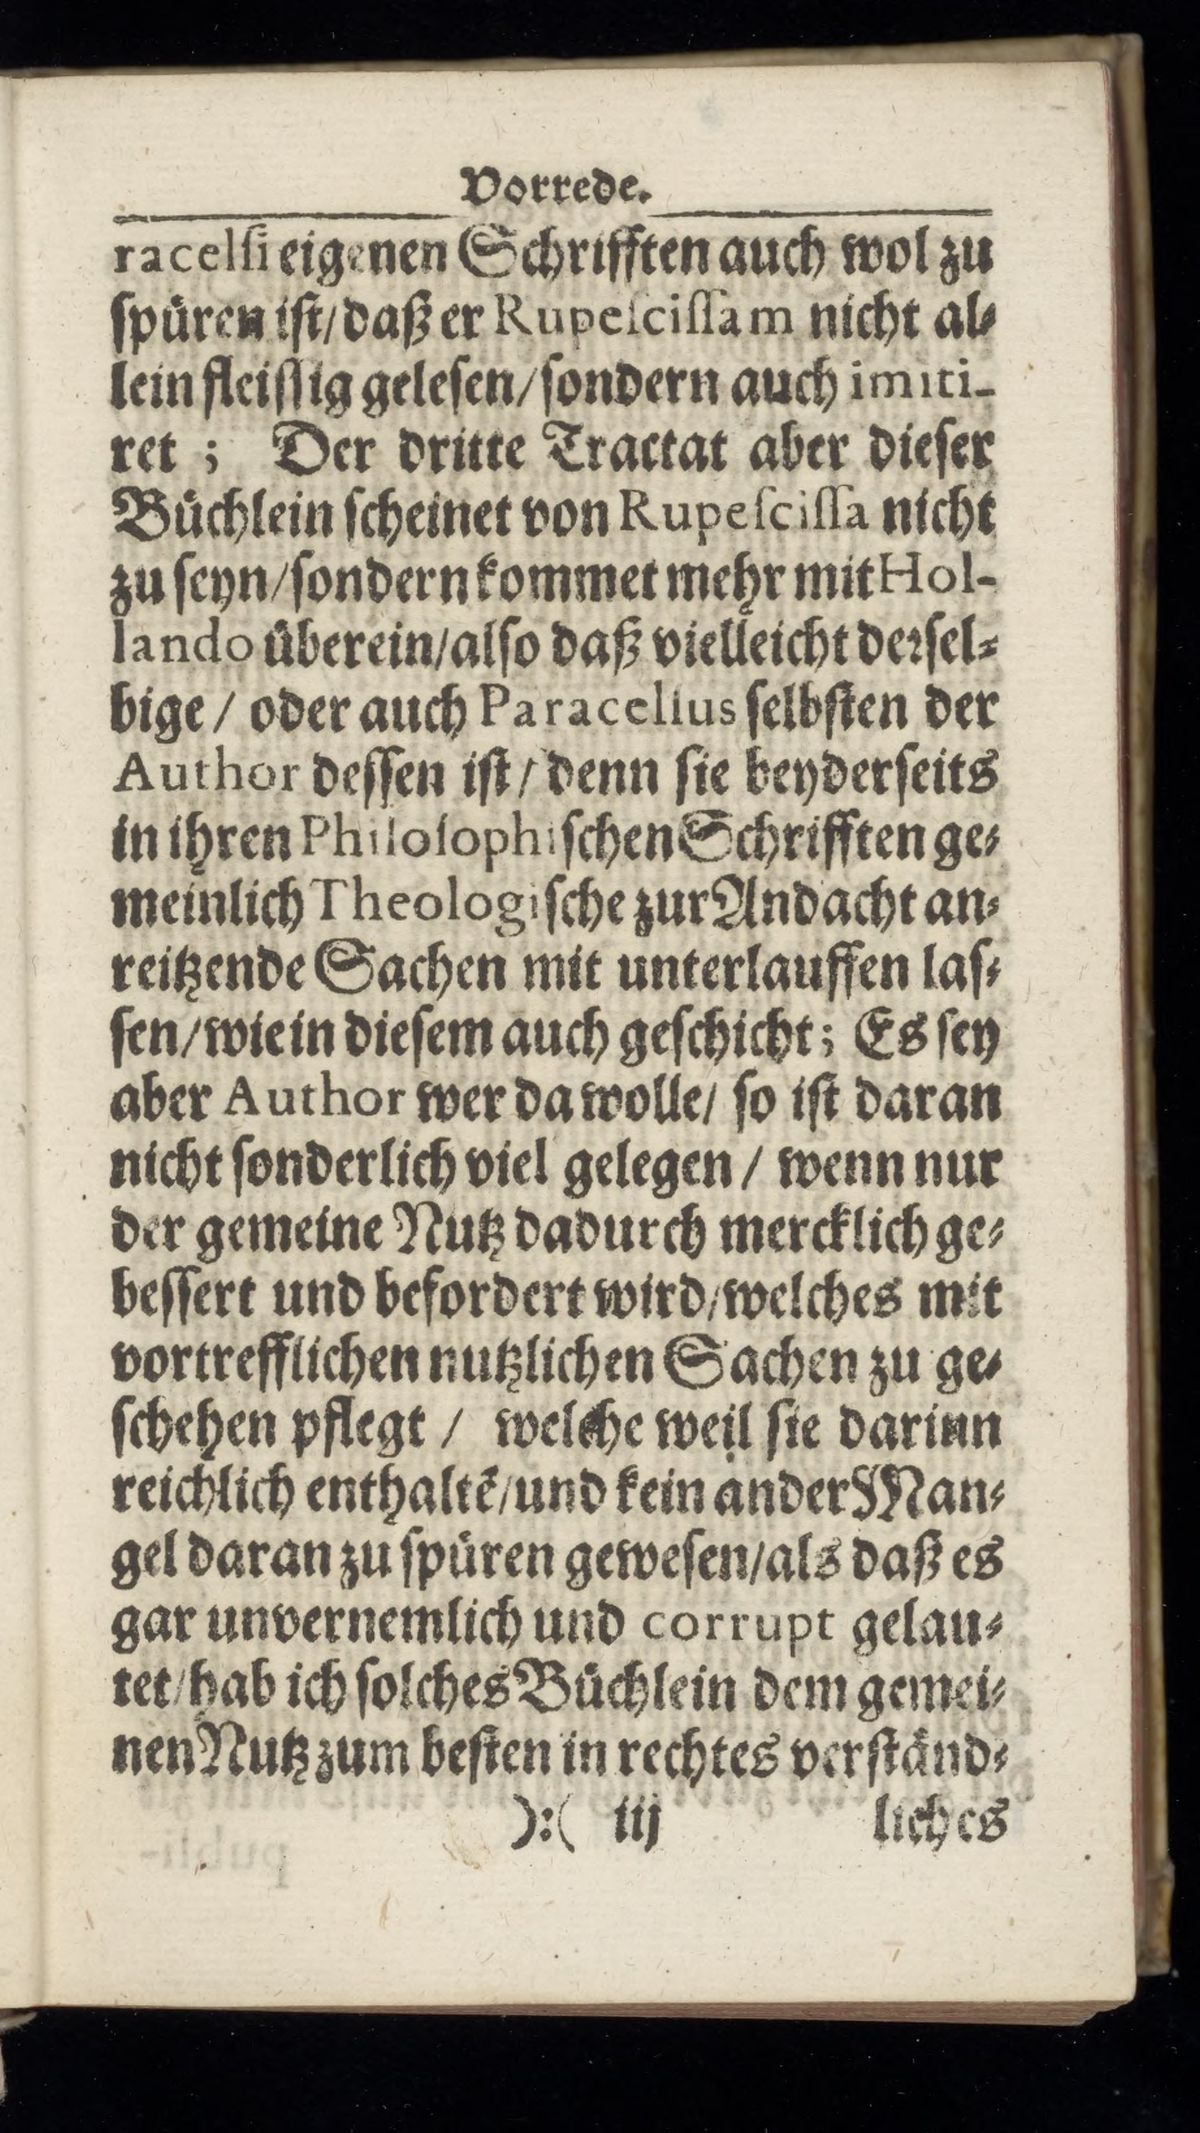 Vorrede.
racelſi eigenen Schrifften auch wol zu
ſpüren iſt/ daß er Rupeſciſſam nicht al-
lein fleiſſig geleſen/ ſondern auch imiti-
ret ; Der dritte Tractat aber dieſer
Büchlein ſcheinet von Rupeſciſſa nicht
zu ſeyn/ ſondern kommet mehr mit Hol-
lando überein/ alſo daß vielleicht derſel-
bige / oder auch Paracelſus ſelbſten der
Author deſſen iſt / denn ſie beyderſeits
in ihren Philoſophiſchen Schrifften ge-
meinlich Theologiſche zur Andacht an-
reitzende Sachen mit unterlauffen laſ-
ſen/ wie in dieſem auch geſchicht; Es ſey
aber Author wer da wolle/ ſo iſt daran
nicht ſonderlich viel gelegen / wenn nur
der gemeine Nutz dadurch mercklich ge-
beſſert und befordert wird/ welches mit
vortrefflichen nutzlichen Sachen zu ge-
ſchehen pflegt / welche weil ſie darinn
reichlich enthaltẽ/ und kein ander Man-
gel daran zu ſpüren geweſen/ als daß es
gar unvernemlich und corrupt gelau-
tet/ hab ich ſolches Büchlein dem gemei-
nen Nutz zum beſten in rechtes verſtänd-
):( iij liches